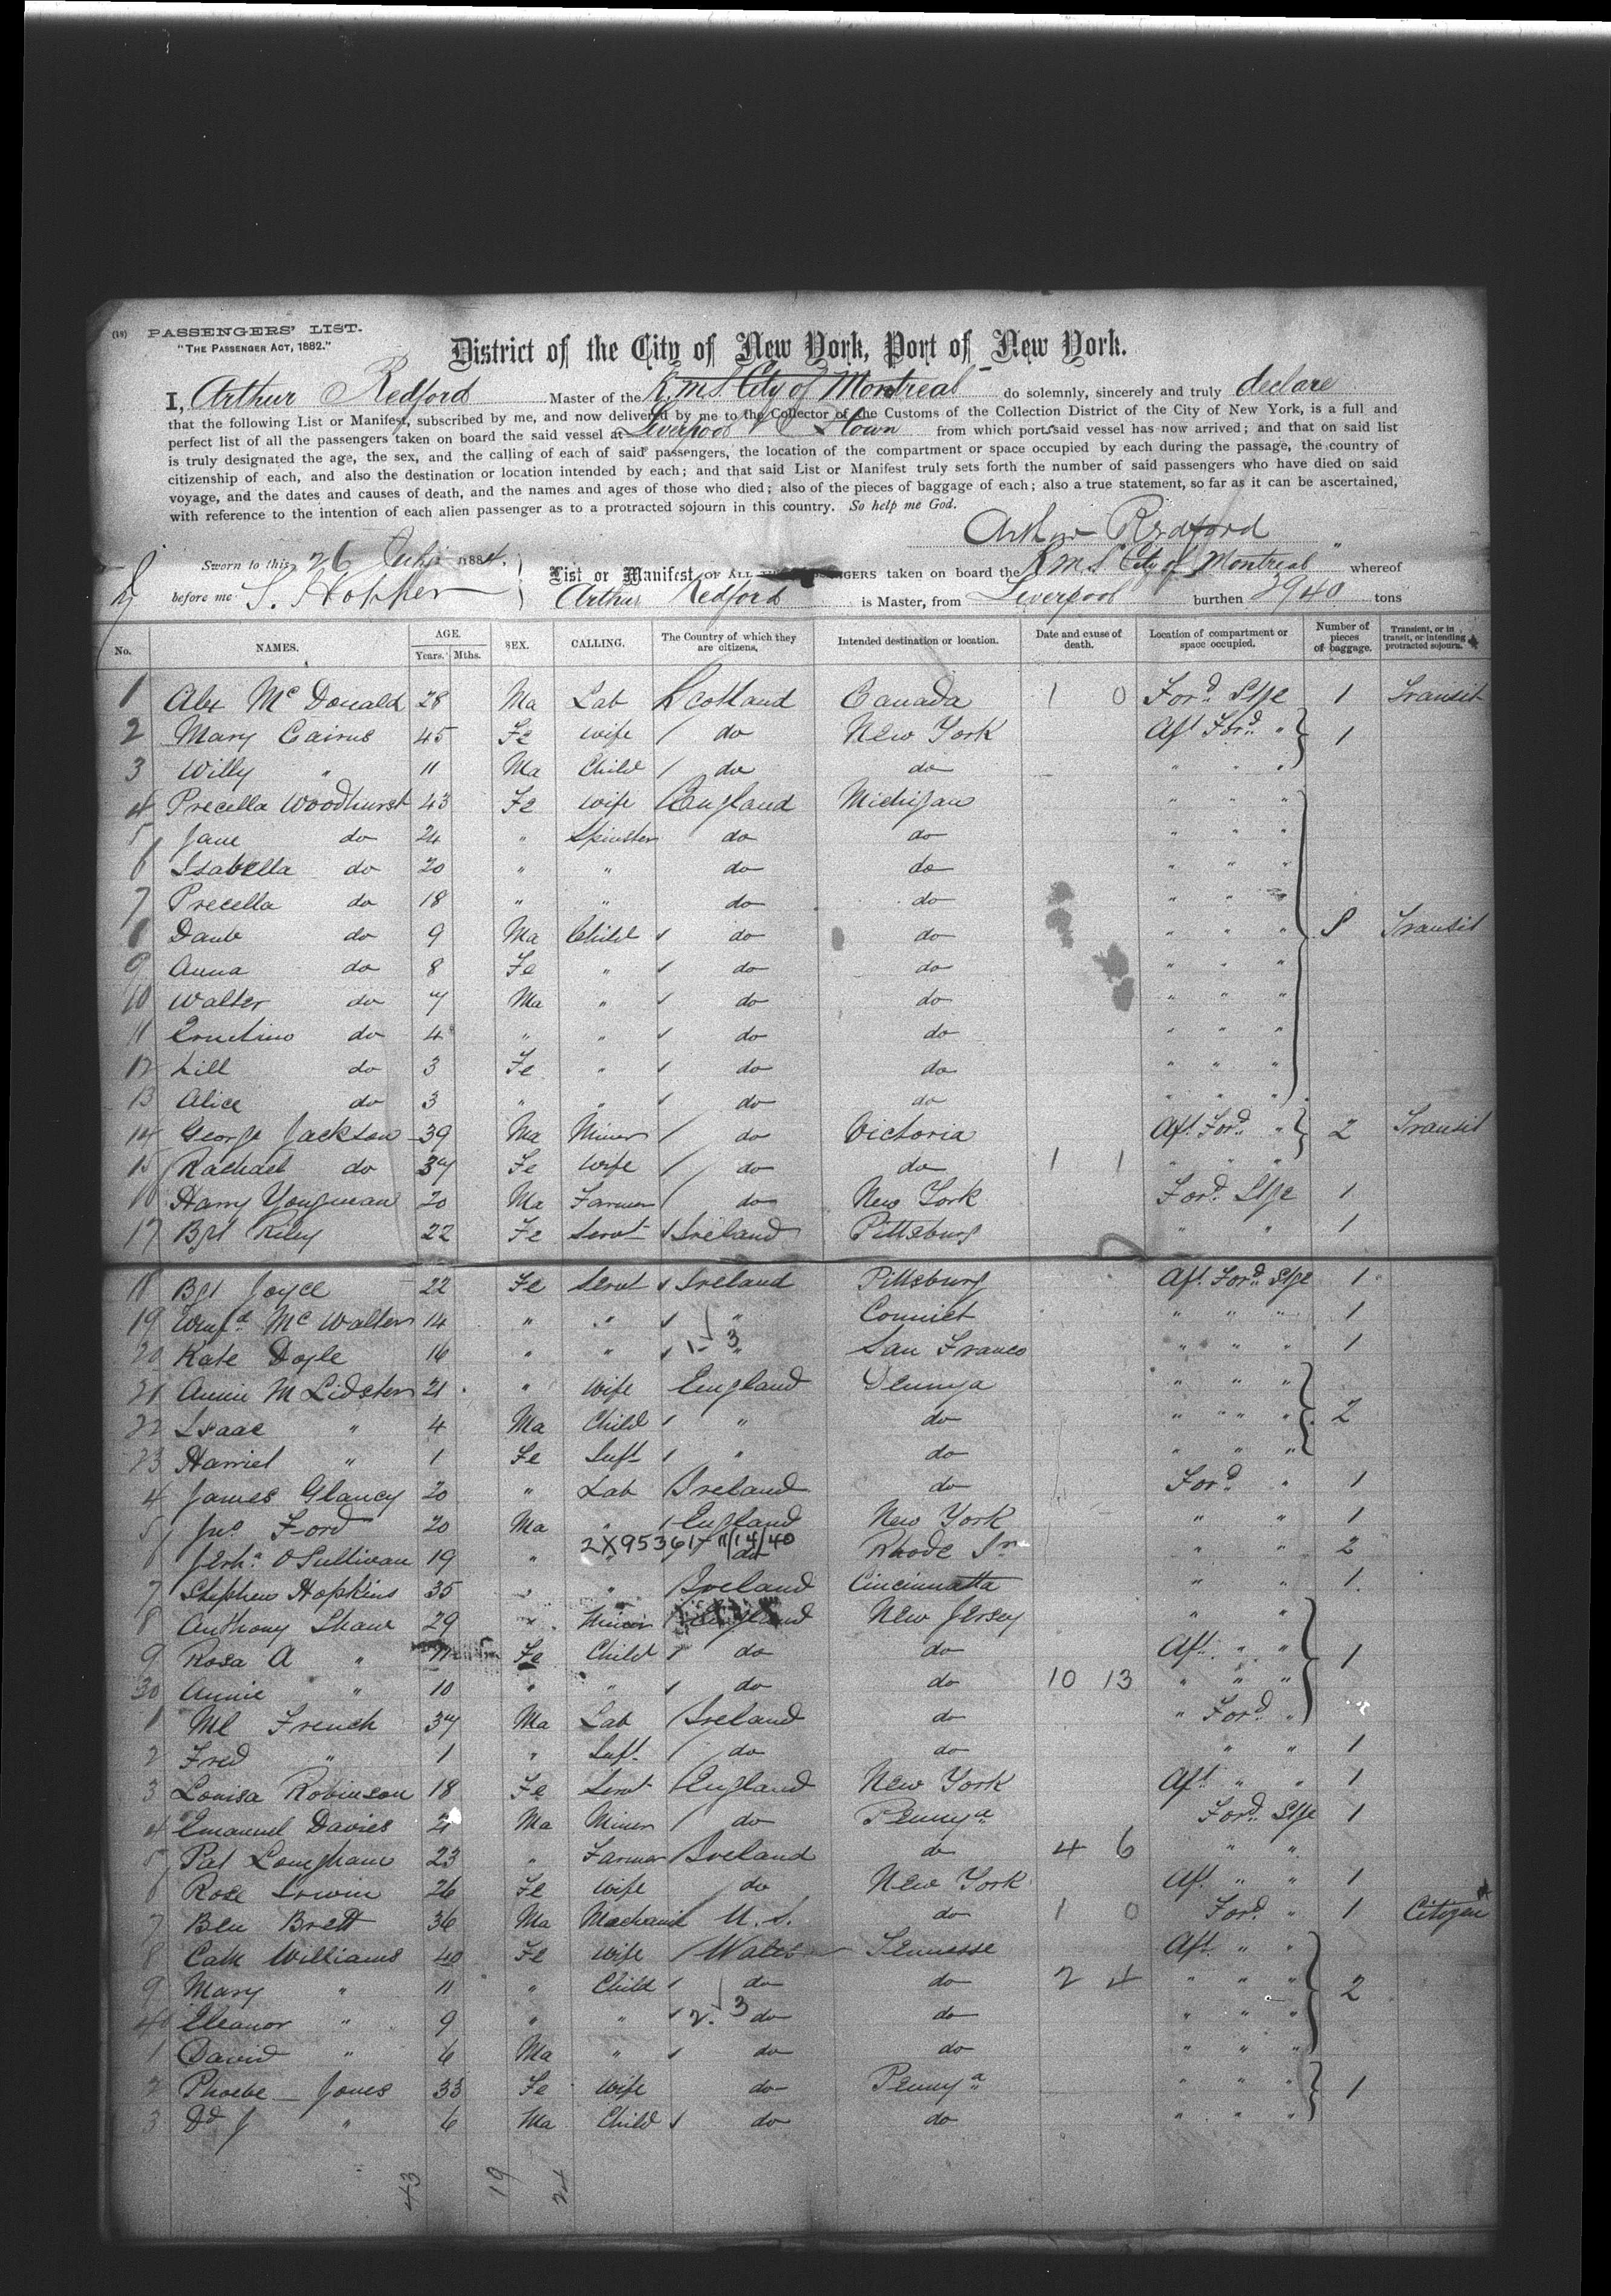 (19) PASSENGERS' LIST.
"THE PASSENGER ACT, 1882."
District of the City of New York, Port of New York.
I, Arthur Redford Master of the R.M.S. City of Montreal do solemnly, sincerely and truly declare
that the following List or Manifest, subscribed by me, and now delivered by me to the Collector of the Customs of the Collection District of the City of New York, is a full and
perfect list of all the passengers taken on board the said vessel at Liverpool & Q Town from which ports said vessel has now arrived; and that on said list
is truly designated the age, the sex, and the calling of each of said passengers, the location of the compartment or space occupied by each during the passage, the country of
citizenship of each, and also the destination or location intended by each; and that said List or Manifest truly sets forth the number of said passengers who have died on said
voyage, and the dates and causes of death, and the names and ages of those who died; also of the pieces of baggage of each; also a true statement, so far as it can be ascertained,
with reference to the intention of each alien passenger as to a protracted sojourn in this country. So help me God.
Arthur Redford
Sworn to this 26 July 1884.
List or Manifest OF ALL THE PASSENGERS taken on board the R.M.S "City of Montreal" whereof
before me S. Hopper
Arthur Redford is Master, from Liverpool burthen 3940 tons
No. NAMES. AGE. Years. Mths. SEX. CALLING. The Country of which they are citizens. Intended destination or location. Date and cause of death. Location of compartment or space occupied. Number of pieces of baggage. Transient, or in transit, or intending protracted sojourn.
1 Alex McDonald 28 Ma Lab Scotland Canada 1 0 Ford Stge 1 Transit
2 Mary Cairns 45 Fe wife / do New York Aft Ford " 1
3 Willy " 11 Ma Child / do do " " "
4 Precella Woodhurst 43 Fe wife / England Michigan " " "
5 Jane do 24 " Spinster do do " " "
6 Isabella do 20 " " do do " " "
7 Precella do 18 " " do do " " "
8 do 9 Ma Child / do do " " " 8 Transit
9 Anna do 8 Fe " / do do " " "
10 Walter do 7 Ma " / do do " " "
11 do 4 " " / do do " " "
12 Lill do 3 Fe " / do do " " "
13 Alice do 3 " " / do do " " "
14 George Jackson 39 Ma Miner / do Victoria Aft Ford " 2 Transit
15 Rachael do 37 Fe wife / do do 1 1 " " "
16 Harry Yongman 20 Ma Farmer / do New York Ford Stge 1
17 Bgt Riley 22 Fe Servt / Ireland Pittsburg " " 1
18 Bgt Joyce 22 Fe Servt / Ireland Pittsburg Aft Ford Stge 1
19 Winfd McWalter 14 " " / " Connict " " " 1
20 Kate Doyle 16 " " / 1-3 " San Franco " " " 1
21 Annie M Lidster 21 " wife England Pennya " " "
22 Isaac " 4 Ma Child / " do " " " 2
23 Harriet " 1 Fe Inft / " do " " "
4 James Glancy 20 " Lab / Ireland do Ford " 1
5 Jno Ford 20 Ma " / England New York " " 1
2X953617 11/14/40
6 Jerha O'Sullivan 19 " " do Rhode " " 2
7 Stephen Hopkins 35 " " / Ireland Cincinnatta " " 1
8 Anthony Shaw 29 " Miner / England New Jersey " "
9 Rosa A " 11 Fe Child / do do Aft " " 1
30 Annie " 10 " " / do do 10 13 " " "
1 Ml French 37 Ma Lab / Ireland do " Ford "
2 Fred " 1 " Inft / do do " " 1
3 Louisa Robinson 18 Fe Servt / England New York Aft " " 1
4 Emanuel Davies 21 Ma Miner / do Pennya Ford Stge 1
5 Pat Longham 23 " Farmer / Ireland do 4 6 " "
6 Rose Irwin 26 Fe wife do New York Aft " " 1
7 Ben Brett 36 Ma Machanic U.S. do 1 0 Ford " 1 Citizen
8 Cath Williams 40 Fe wife / Wales Tennesse Aft " "
9 Mary " 11 " Child / do do 2 4 " " " 2
40 Eleanor " 9 " " / 2.3 do do " " "
1 David " 6 Ma " / do do " " "
2 Phoebe Jones 33 Fe wife do Pennya " " " 1
3 Dd J " 6 Ma Child / do do " " "
43 19 24